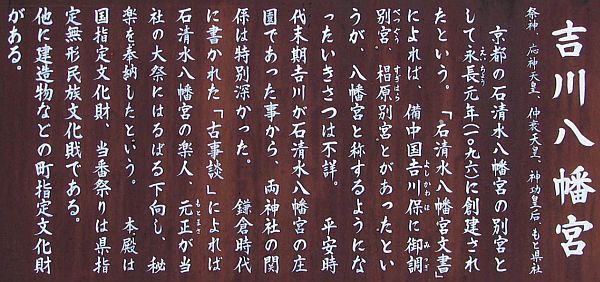 吉川八幡宮
祭神、応神天皇、仲哀天皇、神功皇后、もと県社
京都の石清水八幡宮の別宮と
して永長元年(一〇九六)に創建され
たという。「石清水八幡宮文書」
によれば、備中国吉川保に御調
別宮、椙原別宮とがあったとい
うが、八幡宮と称するようにな
ったいきさつは不詳。 平安時
代末期吉川が石清水八幡宮の庄
園であった事から、両神社の関
係は特別深かった。 鎌倉時代
に書かれた「古事談」によれば
石清水八幡宮の楽人、元正が当
社の大祭にはるばる下向し、秘
楽を奉納したという。 本殿は
国指定文化財、当番祭りは県指
定無形民族文化財である。
他に建造物などの町指定文化財
がある。